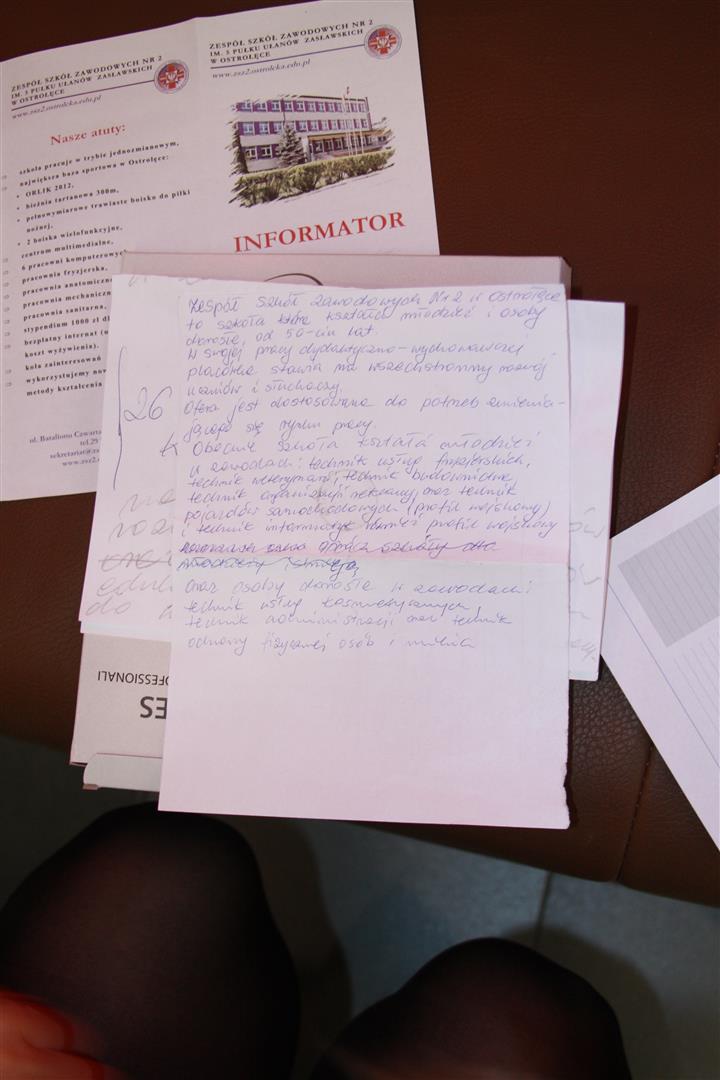 ZESPÓŁ SZKÓŁ ZAWODOWYCH NR 2
IM. 5 PUŁKU UŁANÓW ZASŁAWSKICH
W OSTROŁĘCE
www.zsz2.ostroleka.edu.pl
Nasze atuty:
szkoła pracuje w trybie jednozmianowym,
największa baza sportowa w Ostrołęce:
• ORLIK 2012,
• bieżnia tartanowa 300m,
• pełnowymiarowe trawiaste boisko do piłki
nożnej,
• 2 boiska wielofunkcyjne,
centrum multimedialne,
6 pracowni komputerowych
pracownia fryzjerska,
pracownia anatomiczn
pracownia mechaniczn
pracownia sanitarna,
stypendium 1000 zł d
bezpłatny internat (
koszt wyżywienia).
koła zainteresowań
wykorzystujemy now
metody kształcenia
ul. Batalionu Czwarta
tel.29
sekretariat@zs
www.zsz2.
ZESPÓŁ SZKÓŁ ZAWODOWYCH NR 2
IM. 5 PUŁKU UŁANÓW ZASŁAWSKICH
W OSTROŁĘCE
www.zsz2.ostroleka.edu.pl
INFORMATOR
26
k
Zespół Szkół Zawodowych Nr 2 w Ostrołęce
to szkoła która kształci młodzież i osoby
dorosłe, od 50-ciu lat.
W swojej pracy dydaktyczno-wychowawczej
placówka stawia na wszechstronny rozwój
uczniów i słuchaczy.
Oferta jest dostosowana do potrzeb zmienia-
jącego się rynku pracy.
Obecnie szkoła kształci młodzież
w zawodach: technik usług fryzjerskich,
technik weterynarii, technik budownictwa,
technik organizacji reklamy, oraz technik
pojazdów samochodowych (profil wojskowy)
i technik informatyk również profil wojskowy
oprócz szkoły dla
młodzieży istnieją
oraz osoby dorosłe w zawodach:
technik usług kosmetycznych,
technik administracji oraz technik
ochrony fizycznej osób i mienia
OFESSIONALI
ES